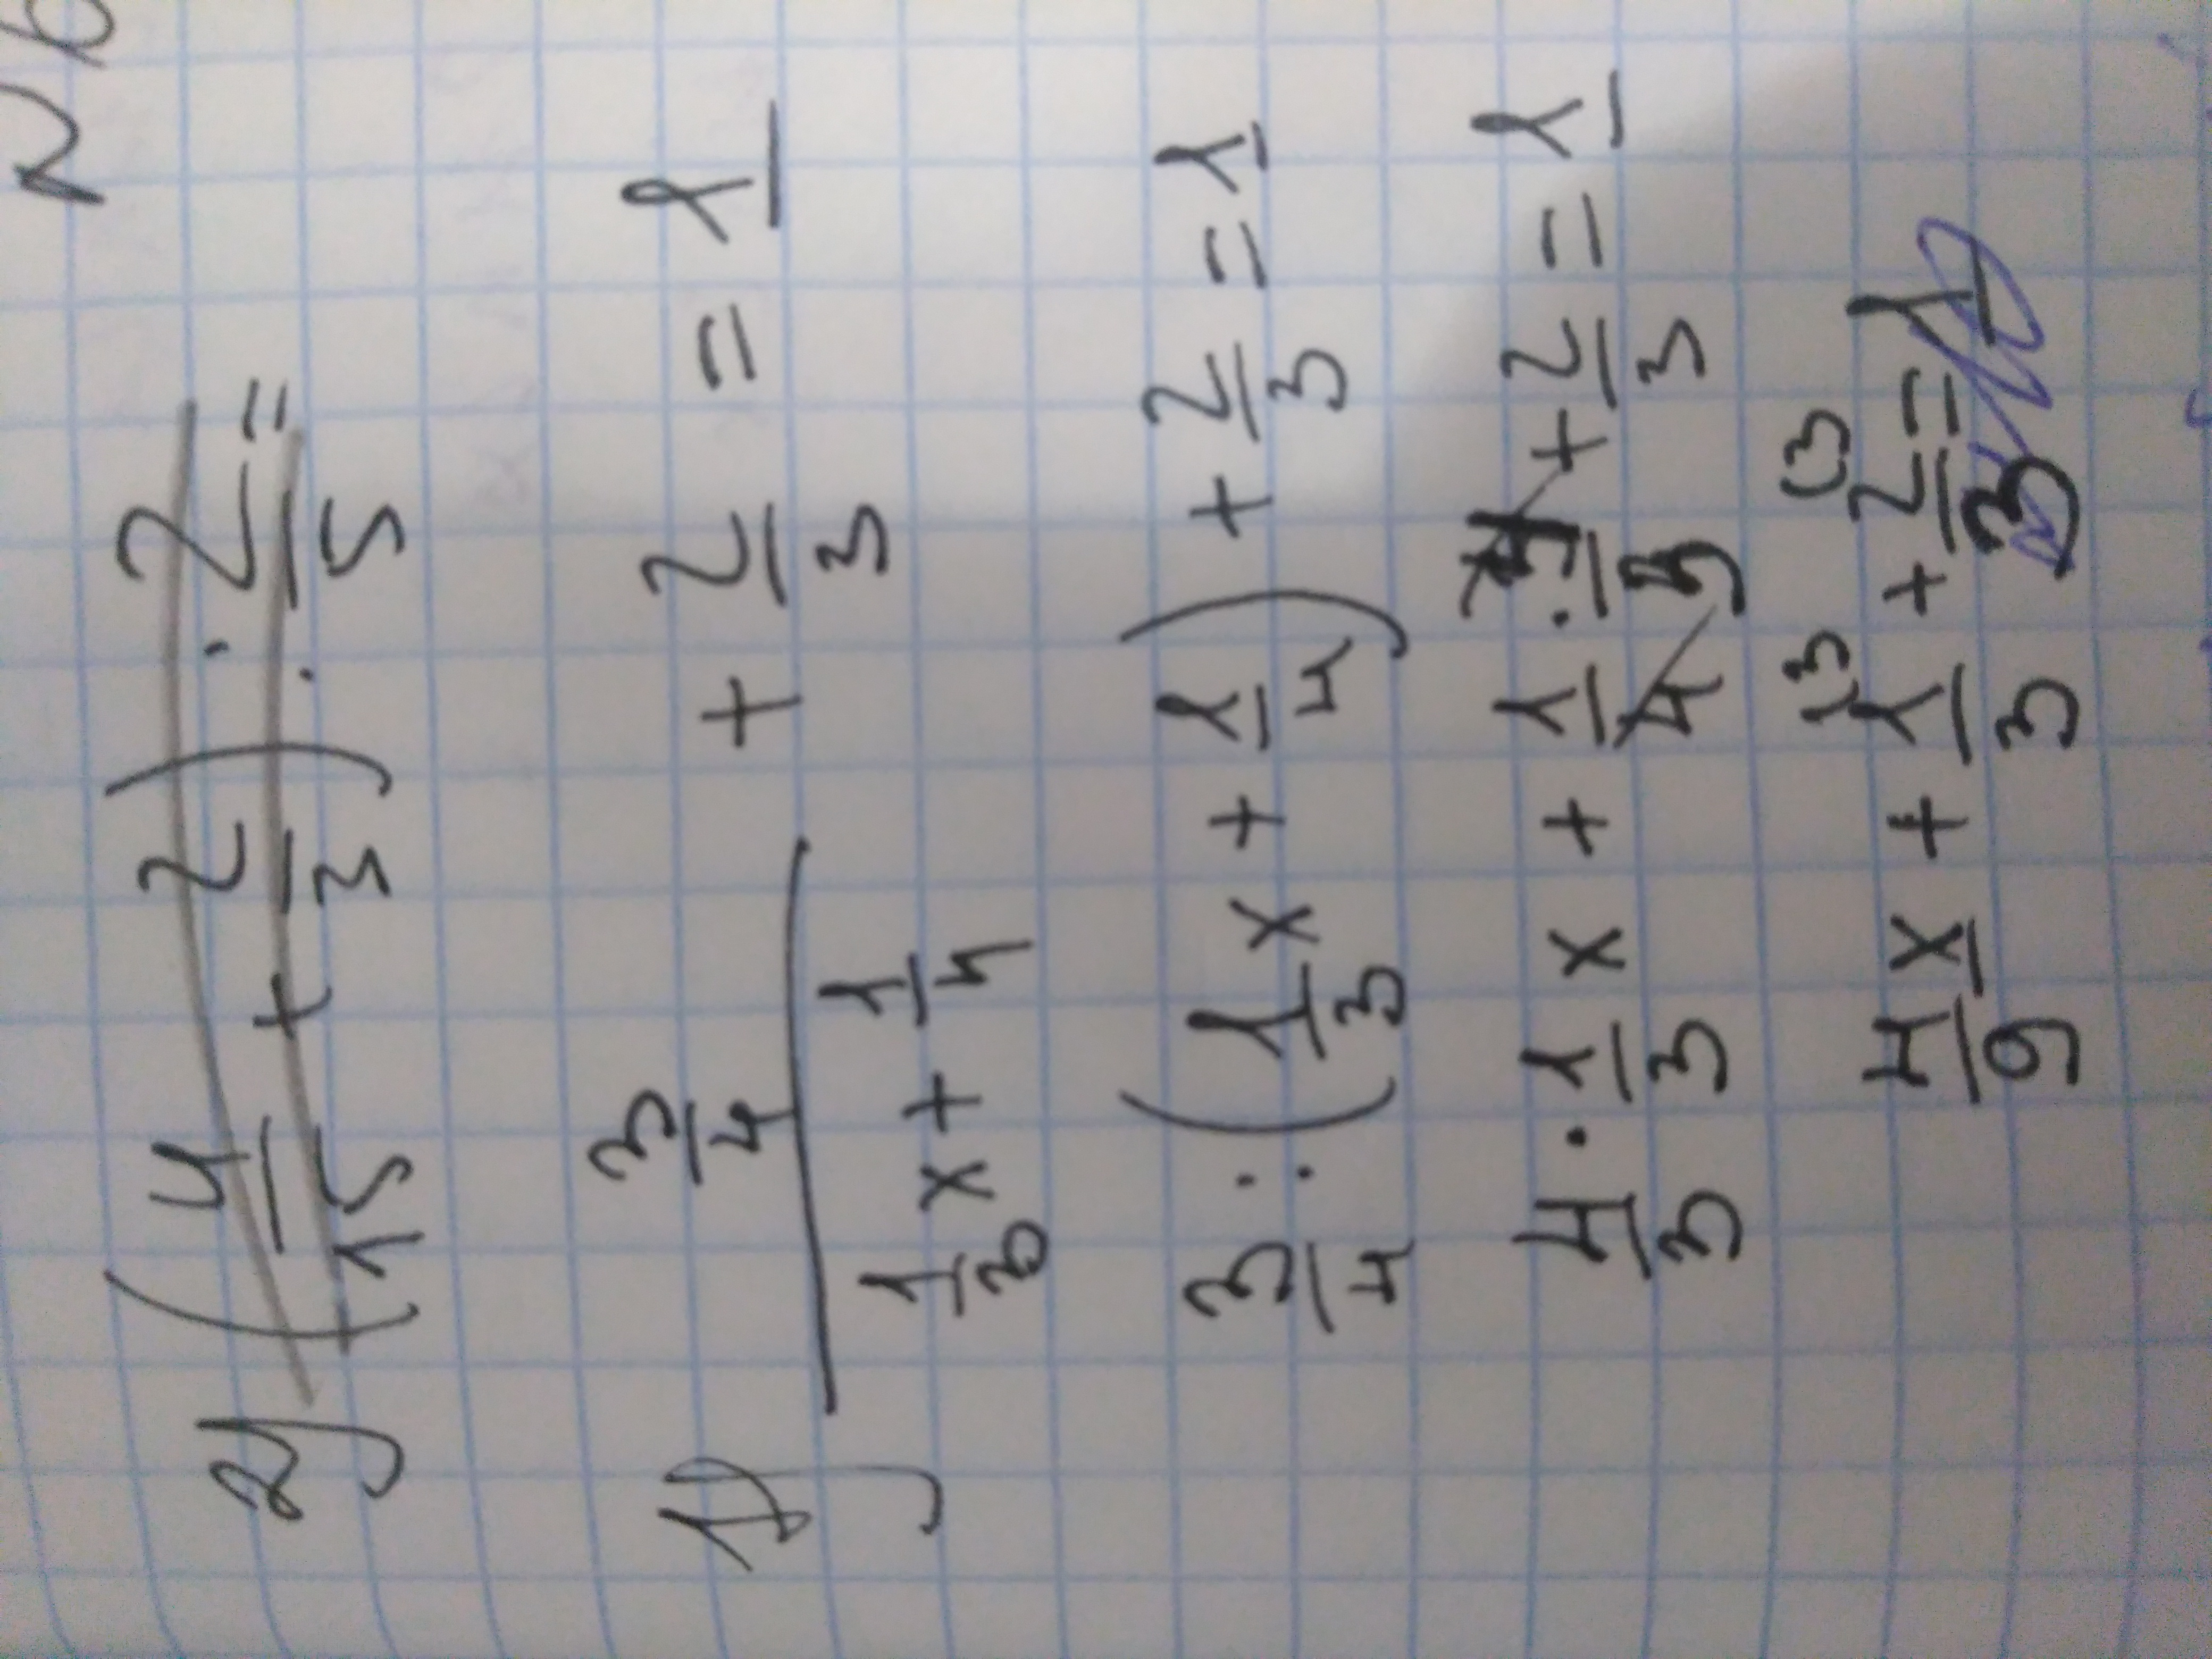 N 6
2) (4/15 + 2/3) : 2/5 =
1) (3/4)/(1/3 x + 1/4) + 2/3 = 1
3/4 : (1/3 x + 1/4) + 2/3 = 1
4/3 · 1/3 x + 1/4 · 4/3 + 2/3 = 1
4/9 x + 1/3 (3 + 2/3 (3 = 1